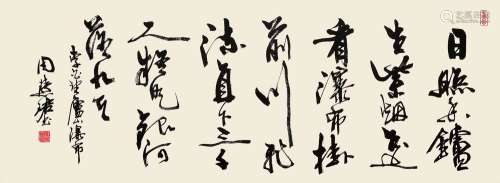 日照香鑪
生紫烟遥
看瀑布掛
前川飛
流直下三千
尺疑是銀河
落九天
李白望廬山瀑布
周慧珺书